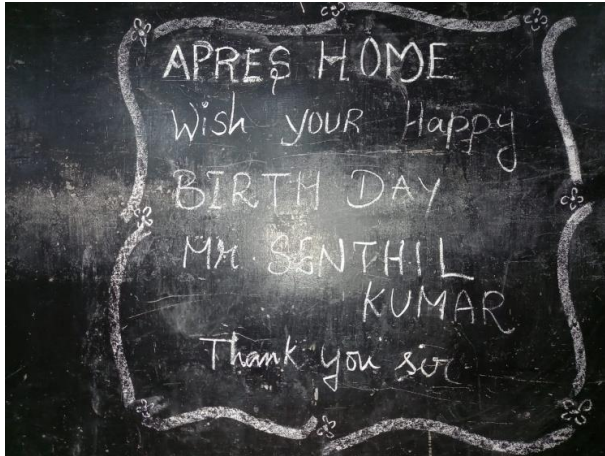 APRES HOME
Wish YOUR Happy
BIRTH DAY
Mr. SENTHIL
KUMAR
Thank you sir